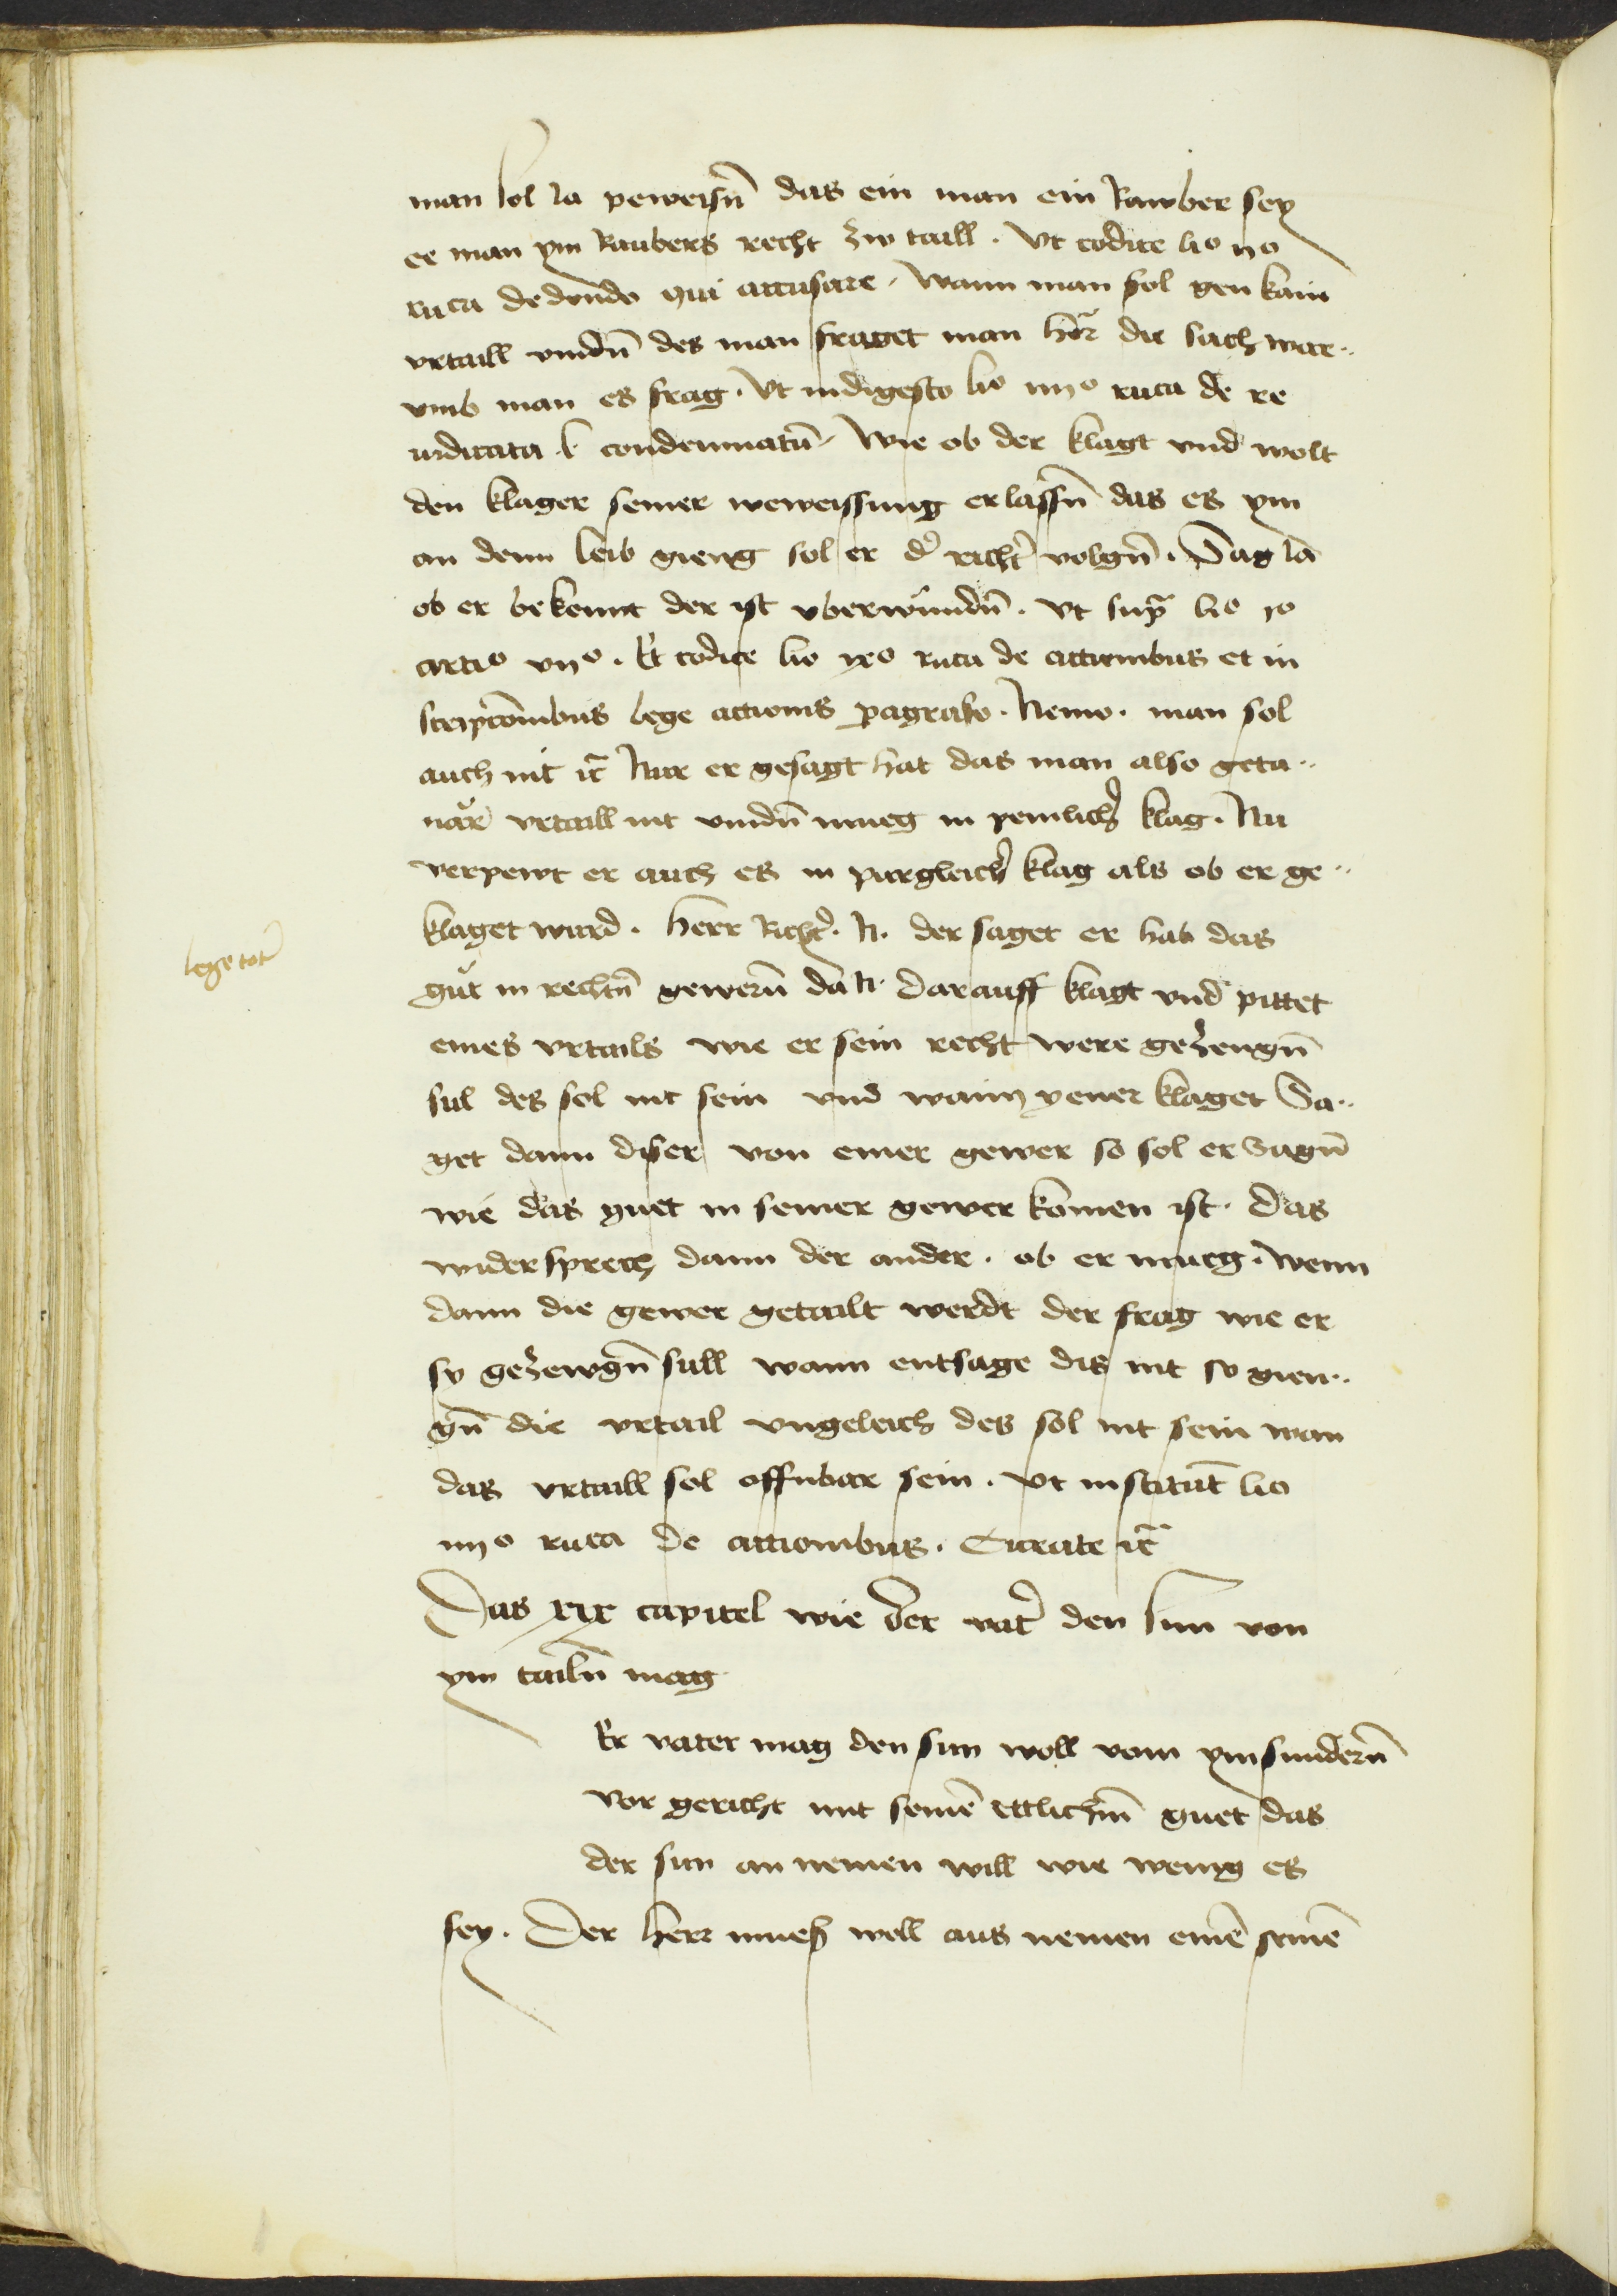 man sol la peweisñ das ein man ein Rawber sey
ee man ym Raubers recht zw taill . Vt codice lio no
ruca de dendo qui accusare . Wann man sol gen kain
vrtaill vindñ des man fraget man hör die sach war..
vmb man es frag . Vt in digesto lio iiijo ruca de re
iudicata l condemnatū . Wie ob der klagt vnd wolt
den klager seiner weweissung erlassñ das es ym
an denn leib gieng sol er d' richt' volgñ . Sag lā
ob er bekennt der ist vberwundñ . Vt supª lio jo
artio vijo . Et codice lio ixo ruca de actionibus et in
scripcōnibus lege actionis pagrafo . Nemo . man sol
auch nit ic Nur er gesagt hat das man also geta..
når vrtaill nit vindñ mueg in peinlich' klag . Nu
verpewt er auch es in purgleich' klag als ob er ge..
klaget wurd . Herr Richt' . N . der saget er hab das
gut in rechtñ gewerñ da N . darauff klagt vnd pittet
eines vrtails wie er sein recht were gezewgñ
sul des sol nit sein vnd wann yener klaget Sa..
get dann diser von einer gewer so sol er sagñ
wie das guet in seiner gewer komen ist . das
widersprech dann der ander . ob er mueg . wenn
dann die gewer getailt werdt der frag wie er
sy gezewgñ sull wann entsage dis nit so gien..
gñ die vrtail vngeleich des sol nit sein wan
das vrtaill sol offnbar sein . Vt institut̄ lio
iiijo ruca de actionibus . Curate ic
Das xix capitel wie der vat' den sun von
ym tailñ mag
Er vater mag den sun woll vom ym sundern̄
vor gericht mit seinē ettlichm̄ guet das
der sun an nemen will wie wenig es
sey . Der herr mueß well aus nemen einē seinē
lege tot'